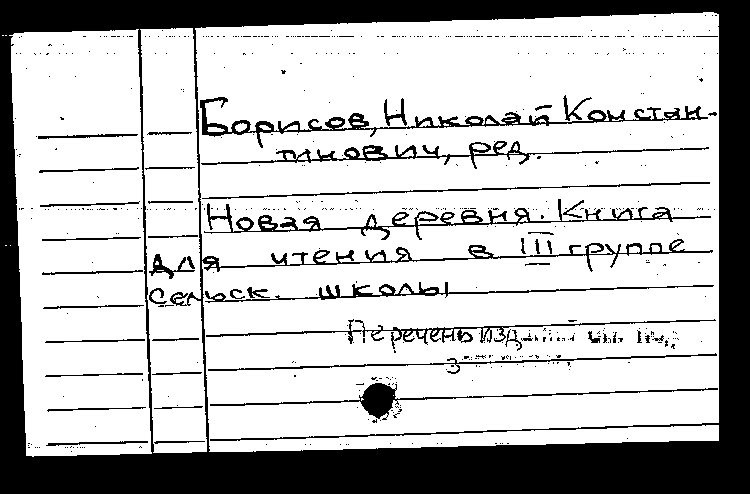 Борисов, Николай Констан-
тинович, ред.
Новая деревня. Книга
для чтения в III группе
сельск. школы
Перечень изданий см. под